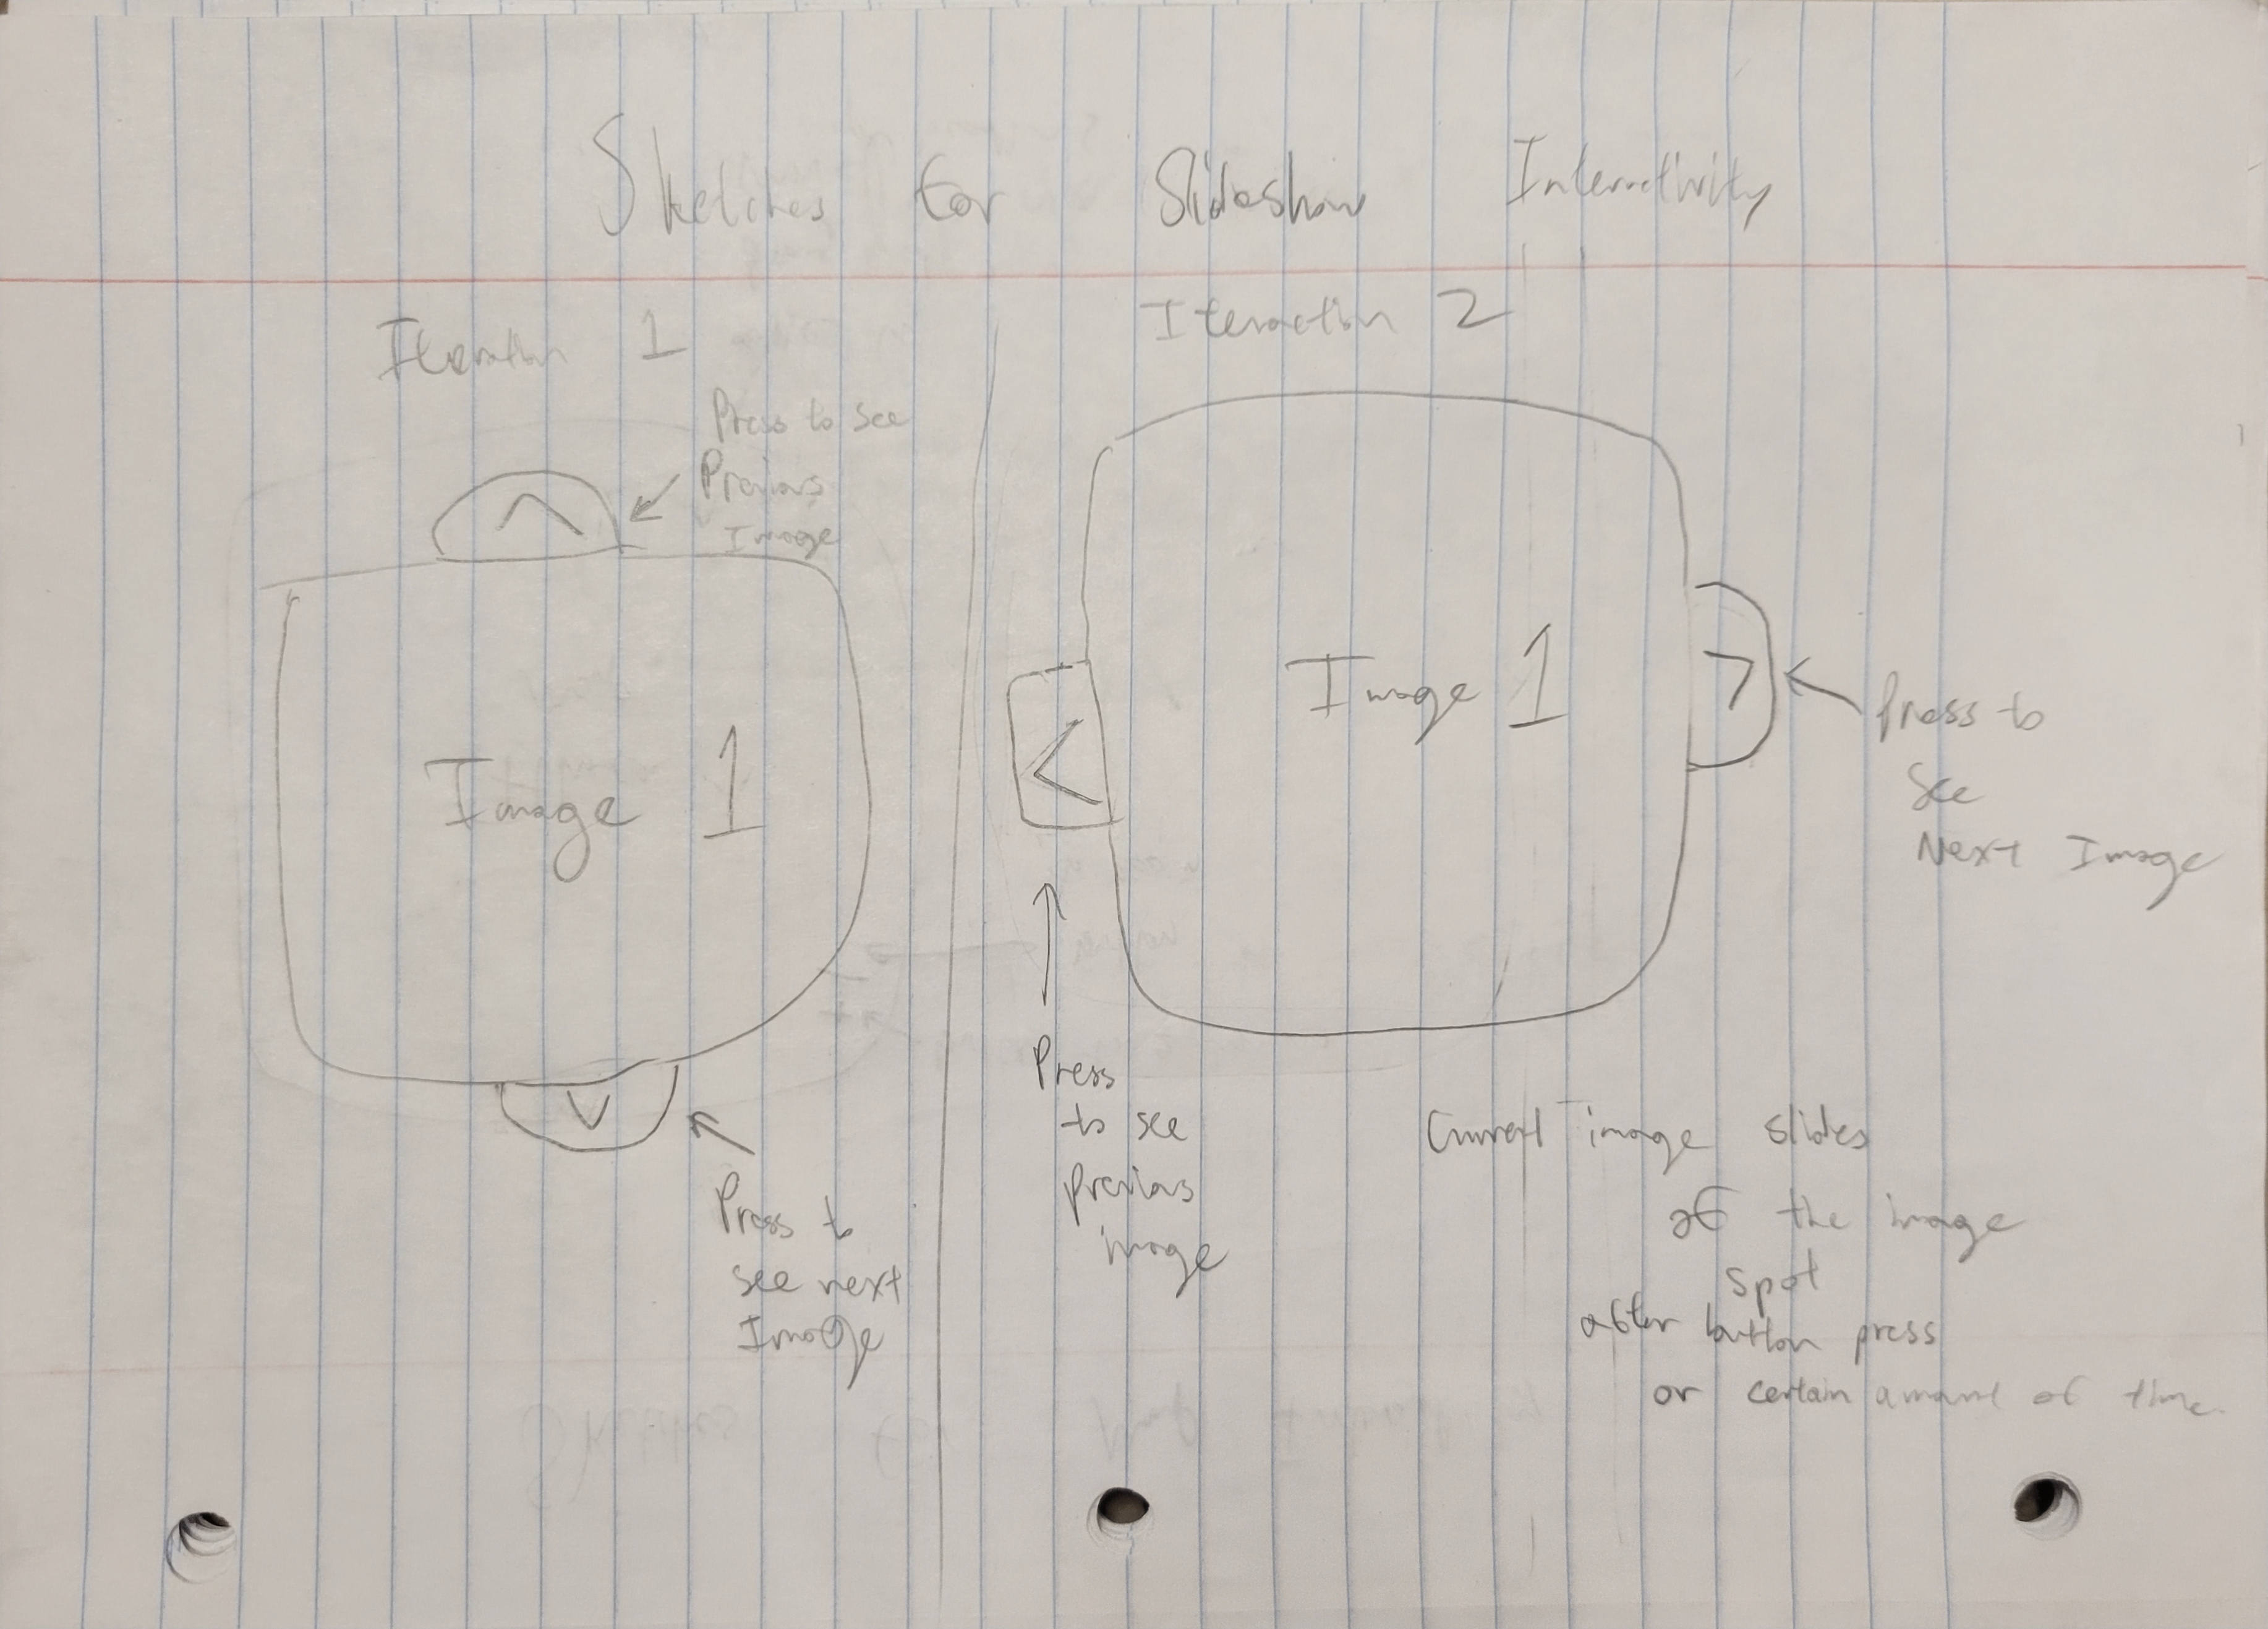 Sketches for Slideshow Interactivity
Iteration 1
Press to see
Previous
Image
^
Image 1
v
Press to
see next
Image
Iteraction 2
Image 1
<
>
Press to
See
Next Image
Press
to see
previous
image
Current image slides
of the image
spot
after button press
or certain amount of time.